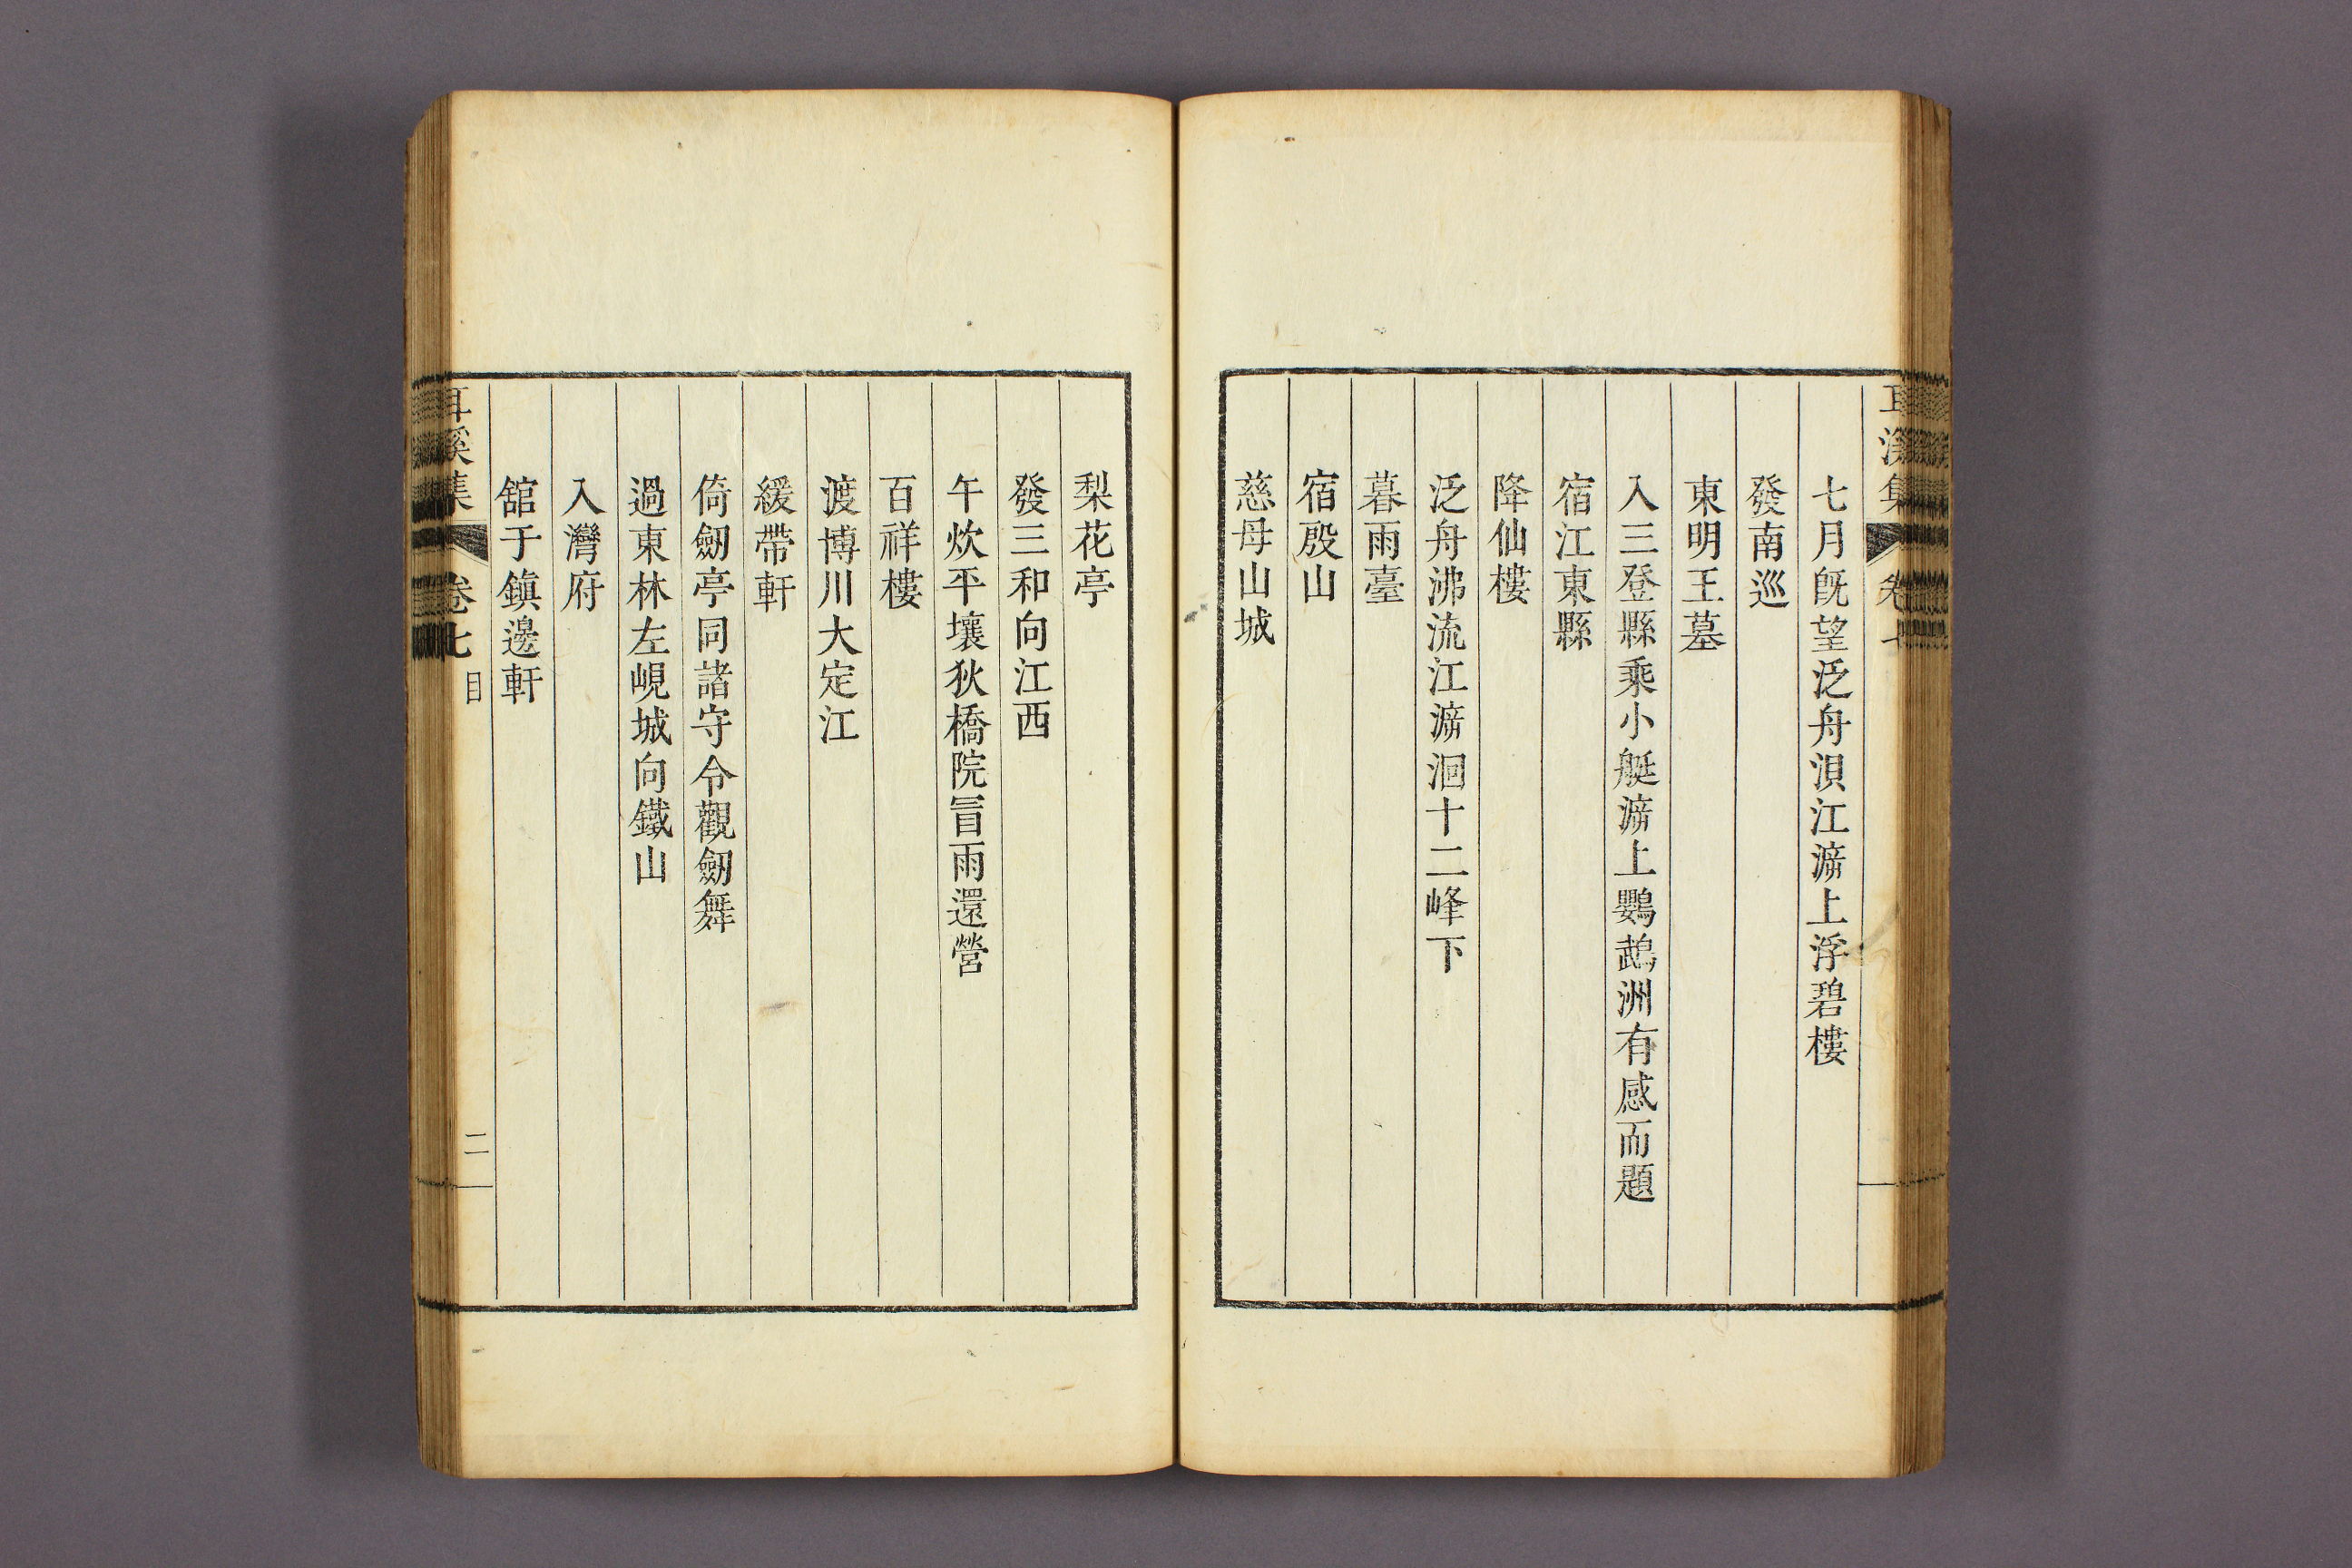 七月旣望泛舟浿江㴑上浮碧樓
發南巡
東明王墓
入三登縣乘小艇㴑上鸚鵡洲有感而題
宿江東縣
降仙樓
泛舟沸流江㴑洄十二峰下
暮雨臺
宿殷山
慈母山城
梨花亭
發三和向江西
午炊平壤狄橋院冐雨還營
百祥樓
渡博川大定江
緩帶軒
倚劒亭同諸守令觀劒舞
過東林左峴城向鐵山
入灣府
舘于鎭邊軒
耳溪集 卷七 目 二